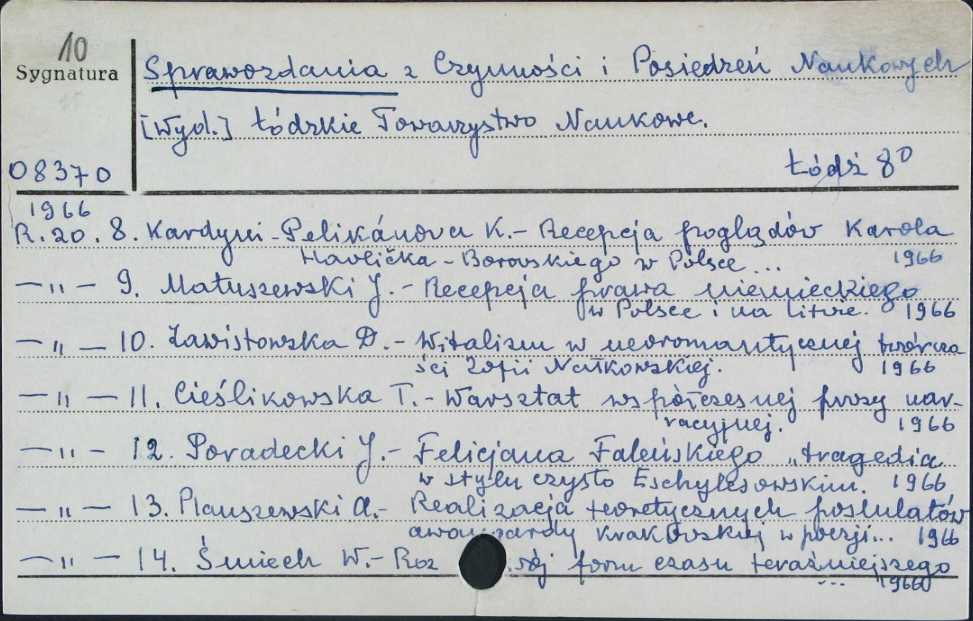 10
Sygnatura
Sprawozdania z Czynności i Posiedzeń Naukowych
[Wyd.] Łódzkie Towarzystwo Naukowe.
08370
Łódź 8⁰
1966
R. 20. 8. Kardyni-Pelikánova K. - Recepcja poglądów Karola
Havlička - Borovskiego w Polsce ... 1966
— " — 9. Matuszewski J. - Recepcja prawa niemieckiego
w Polsce i na Litwie. 1966
— " — 10. Zawistowska D. - Witalizm w neoromantycznej twórczo
ści Zofii Nałkowskiej. 1966
— " — 11. Cieślikowska T. - Warsztat współczesnej prozy nar-
racyjnej. 1966
— " — 12. Poradecki J. - Felicjana Faleńskiego „tragedia
w stylu czysto Eschylesowskim. 1966
— " — 13. Plauszewski A. - Realizacja teoretycznych postulatów
awangardy Krakowskiej w poezji... 1966
— " — 14. Śmiech W. - Roz ój form czasu teraźniejszego
... 1966